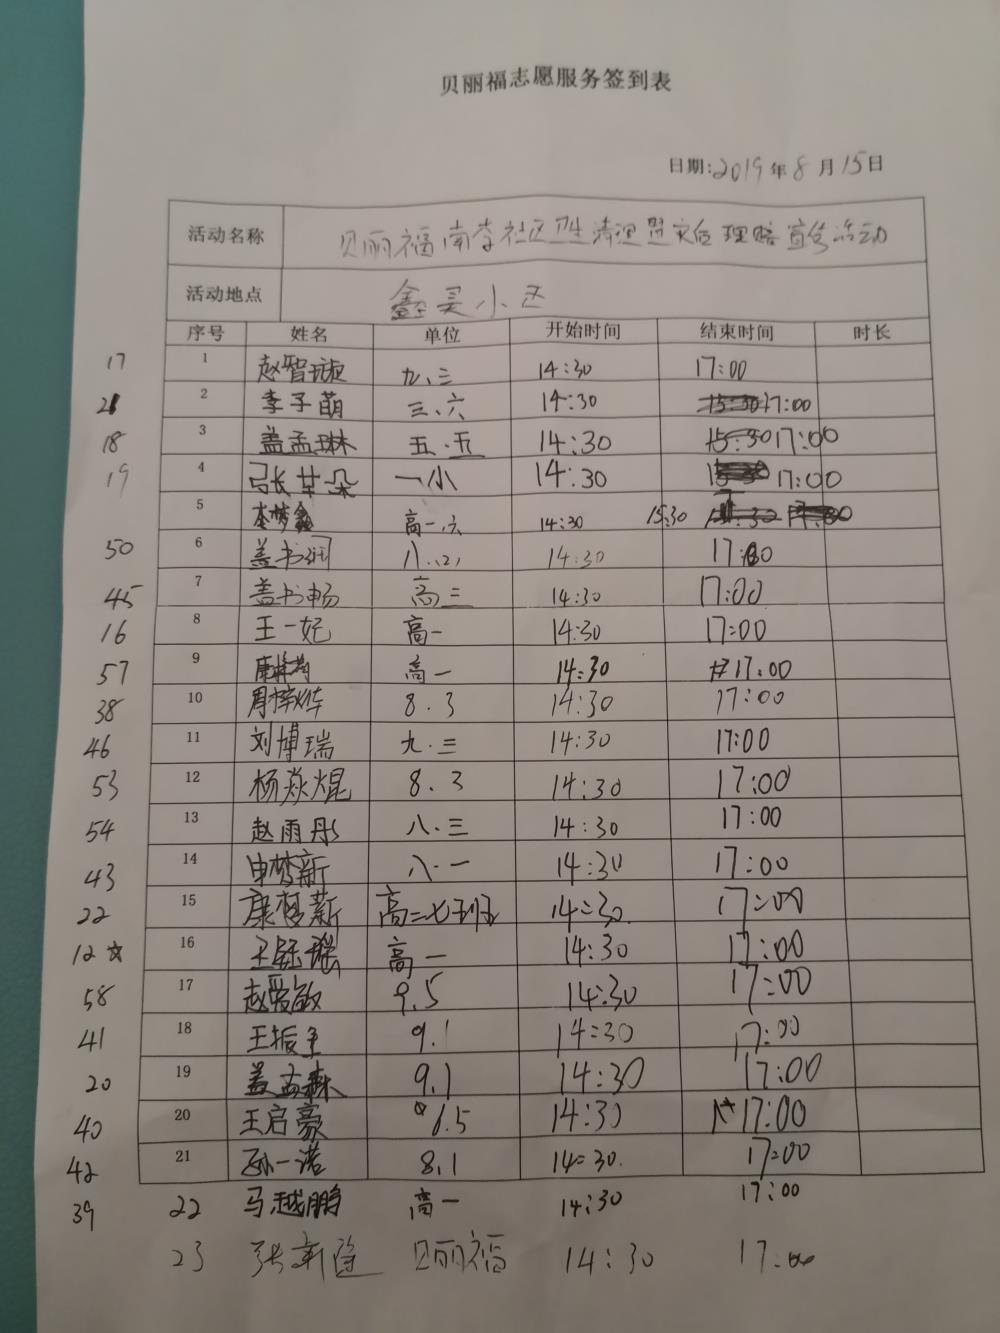 贝丽福志愿服务签到表
日期:2019年8月15日
活动名称 贝丽福南李社区卫生清理暨灾后理赔宣传活动
活动地点 鑫昊小区
序号 姓名 单位 开始时间 结束时间 时长
17 1 赵智 九、三 14:30 17:00
21 2 李子萌 三、六 14:30 17:00
18 3 盖孟琳 五·五 14:30 17:00
19 4 张芸朵 一小 14:30 17:00
5 李梦鑫 高一、六 14:30 15:30
50 6 盖书润 八、(2) 14:30 17:00
45 7 盖书畅 高三 14:30 17:00
16 8 王一妃 高一 14:30 17:00
57 9 高一 14:30 17:00
38 10 周梓烨 8.3 14:30 17:00
46 11 刘博瑞 九·三 14:30 17:00
53 12 杨焱焜 8.3 14:30 17:00
54 13 赵雨彤 八·三 14:30 17:00
43 14 申梦新 八·一 14:30 17:00
22 15 康梦薪 高二七班 14:30 17:00
12☆ 16 王钰瑶 高一 14:30 17:00
58 17 赵爱敏 9.5 14:30 17:00
41 18 王振 9.1 14:30 17:00
20 19 盖孟森 9.1 14:30 17:00
40 20 王启豪 6.5 14:30 17:00
42 21 孙一诺 8.1 14:30. 17:00
39 22 马越鹏 高一 14:30 17:00
23 张新 贝丽福 14:30 17:00